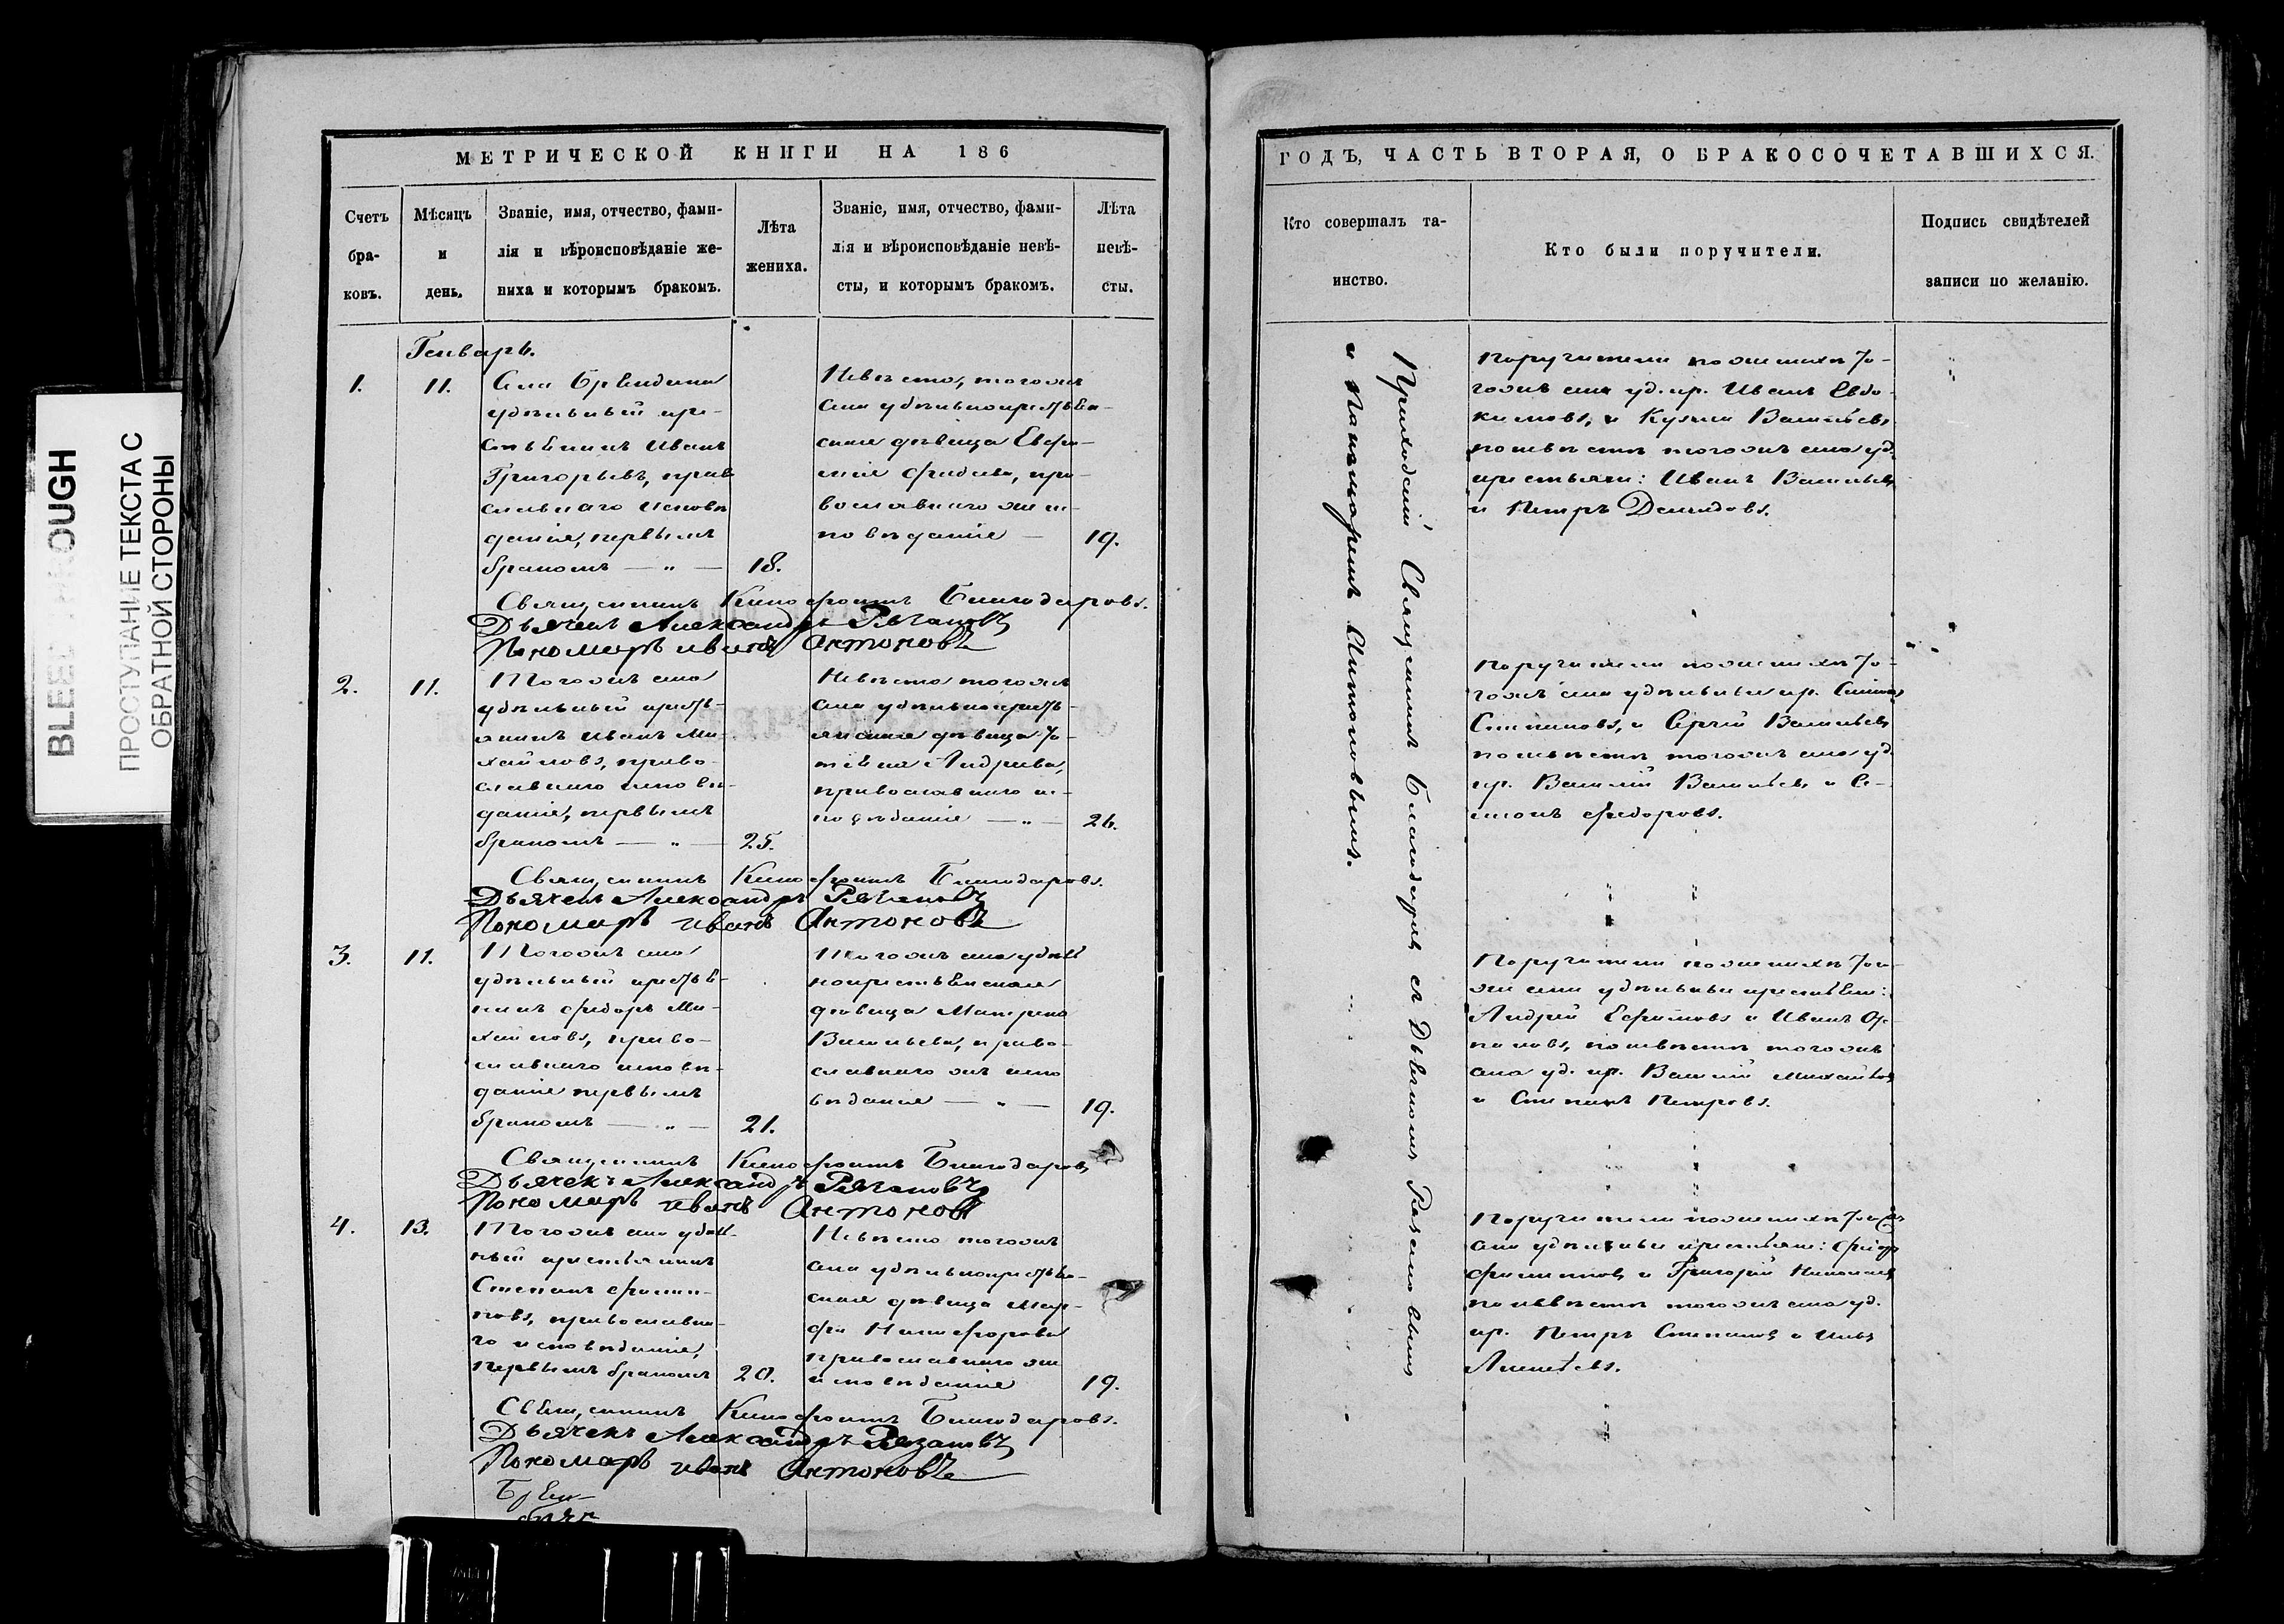 BLEED THROUGH
ПРОСТУПАНИЕ ТЕКСТА С
ОБРАТНОЙ СТОРОНЫ
МЕТРИЧЕСКОЙ КНИГИ НА 186
Счетъ бра- ковъ.
Мѣсяцъ и день.
Званіе, имя, отчество, фами-
лія и вѣроисповѣданіе же-
ниха и которымъ бракомъ.
Лѣта
жениха.
Званіе, имя, отчество, фами-
лія и вѣроисповѣданіе невѣ-
сты, и которымъ бракомъ.
Лѣта
невѣ-
сты.
Генварь.
1.
11.
Села
удѣльный кре-
стьянинъ Иванъ
Григорьевъ, прав
славнаго исповѣ
данія, первымъ
бракомъ — „ —
18.
Невѣста, тогоже
села удѣльнокрестьян-
ская дѣвица Евфи-
мія, пра-
вославнаго же ис-
повѣданія —
19.
Священникъ Ксенофонтъ Благодаровъ.
Дьячекъ Александръ Рязановъ
Пономарь Иванъ Антоновъ
2.
11.
Тогоже села
удѣльный кресть-
янинъ Иванъ Ми-
хайловъ, право-
славнаго исповѣ-
данія, первымъ
бракомъ — „ —
25.
Невѣста тогоже
села удѣльнокресть-
янская дѣвица
Андреева,
православнаго ис-
повѣданія — „ —
26.
Священникъ Ксенофонтъ Благодаровъ.
Дьячекъ Александръ Рязановъ
Пономарь Иванъ Антоновъ
3.
11.
Тогоже села
удѣльный крестья-
нинъ Ѳедоръ Ми-
хайловъ, право-
славнаго исповѣ-
данія первымъ
бракомъ — „ —
21.
Тогоже села удѣль
нокрестьянская
дѣвица Матрена
Васильева, право-
славнаго же испо
вѣданія — „ —
19.
Священникъ Ксенофонтъ Благодаровъ
Дьячекъ Александръ Рязановъ
Пономарь Иванъ Антоновъ
4.
13.
Тогоже села удѣль-
ный крестьянинъ
Степанъ Филип-
повъ, православна-
го исповѣданія,
первымъ бракомъ
20.
Невѣста тогоже
села удѣльнокрестьян-
ская дѣвица Мар-
фа Никифорова
православнаго же
исповѣданія
19.
Священникъ Ксенофонтъ Благодаровъ.
Дьячекъ Александръ Рязановъ
Пономарь Иванъ Антоновъ
ГОДЪ, ЧАСТЬ ВТОРАЯ, О БРАКОСОЧЕТАВШИХСЯ.
Кто совершалъ та-
инство.
Кто были поручители.
Подпись свидѣтелей
записи по желанію.
Приходскій Священникъ Благодаровъ съ Дьячкомъ Рязановымъ
и Пономаремъ Антоновымъ.
Поручители по женихѣ то-
гоже села уд. кр. Иванъ Евдо-
кимовъ, и Кузьма Васильевъ,
по невѣстѣ тогоже села уд.
крестьяни: Иванъ Васильевъ
и Петръ Демидовъ.
Поручители по женихѣ то-
гоже села удѣльные кр.
Степановъ, и Сергѣй Васильевъ
по невѣстѣ тогоже села уд.
кр. Василій Васильевъ и Се-
менъ Ѳедоровъ.
Поручители по женихѣ того-
же села удѣльные крестьяни:
Андрей Ефимовъ и Иванъ
по невѣстѣ тогоже
села уд. кр. Василій Михайловъ
и Степанъ Петровъ.
Поручители по женихѣ тогоже
села удѣльные крестьяни: Ѳедоръ
Филипповъ и Григорій Николаевъ
по невѣстѣ тогоже села уд.
кр. Петръ Степановъ и